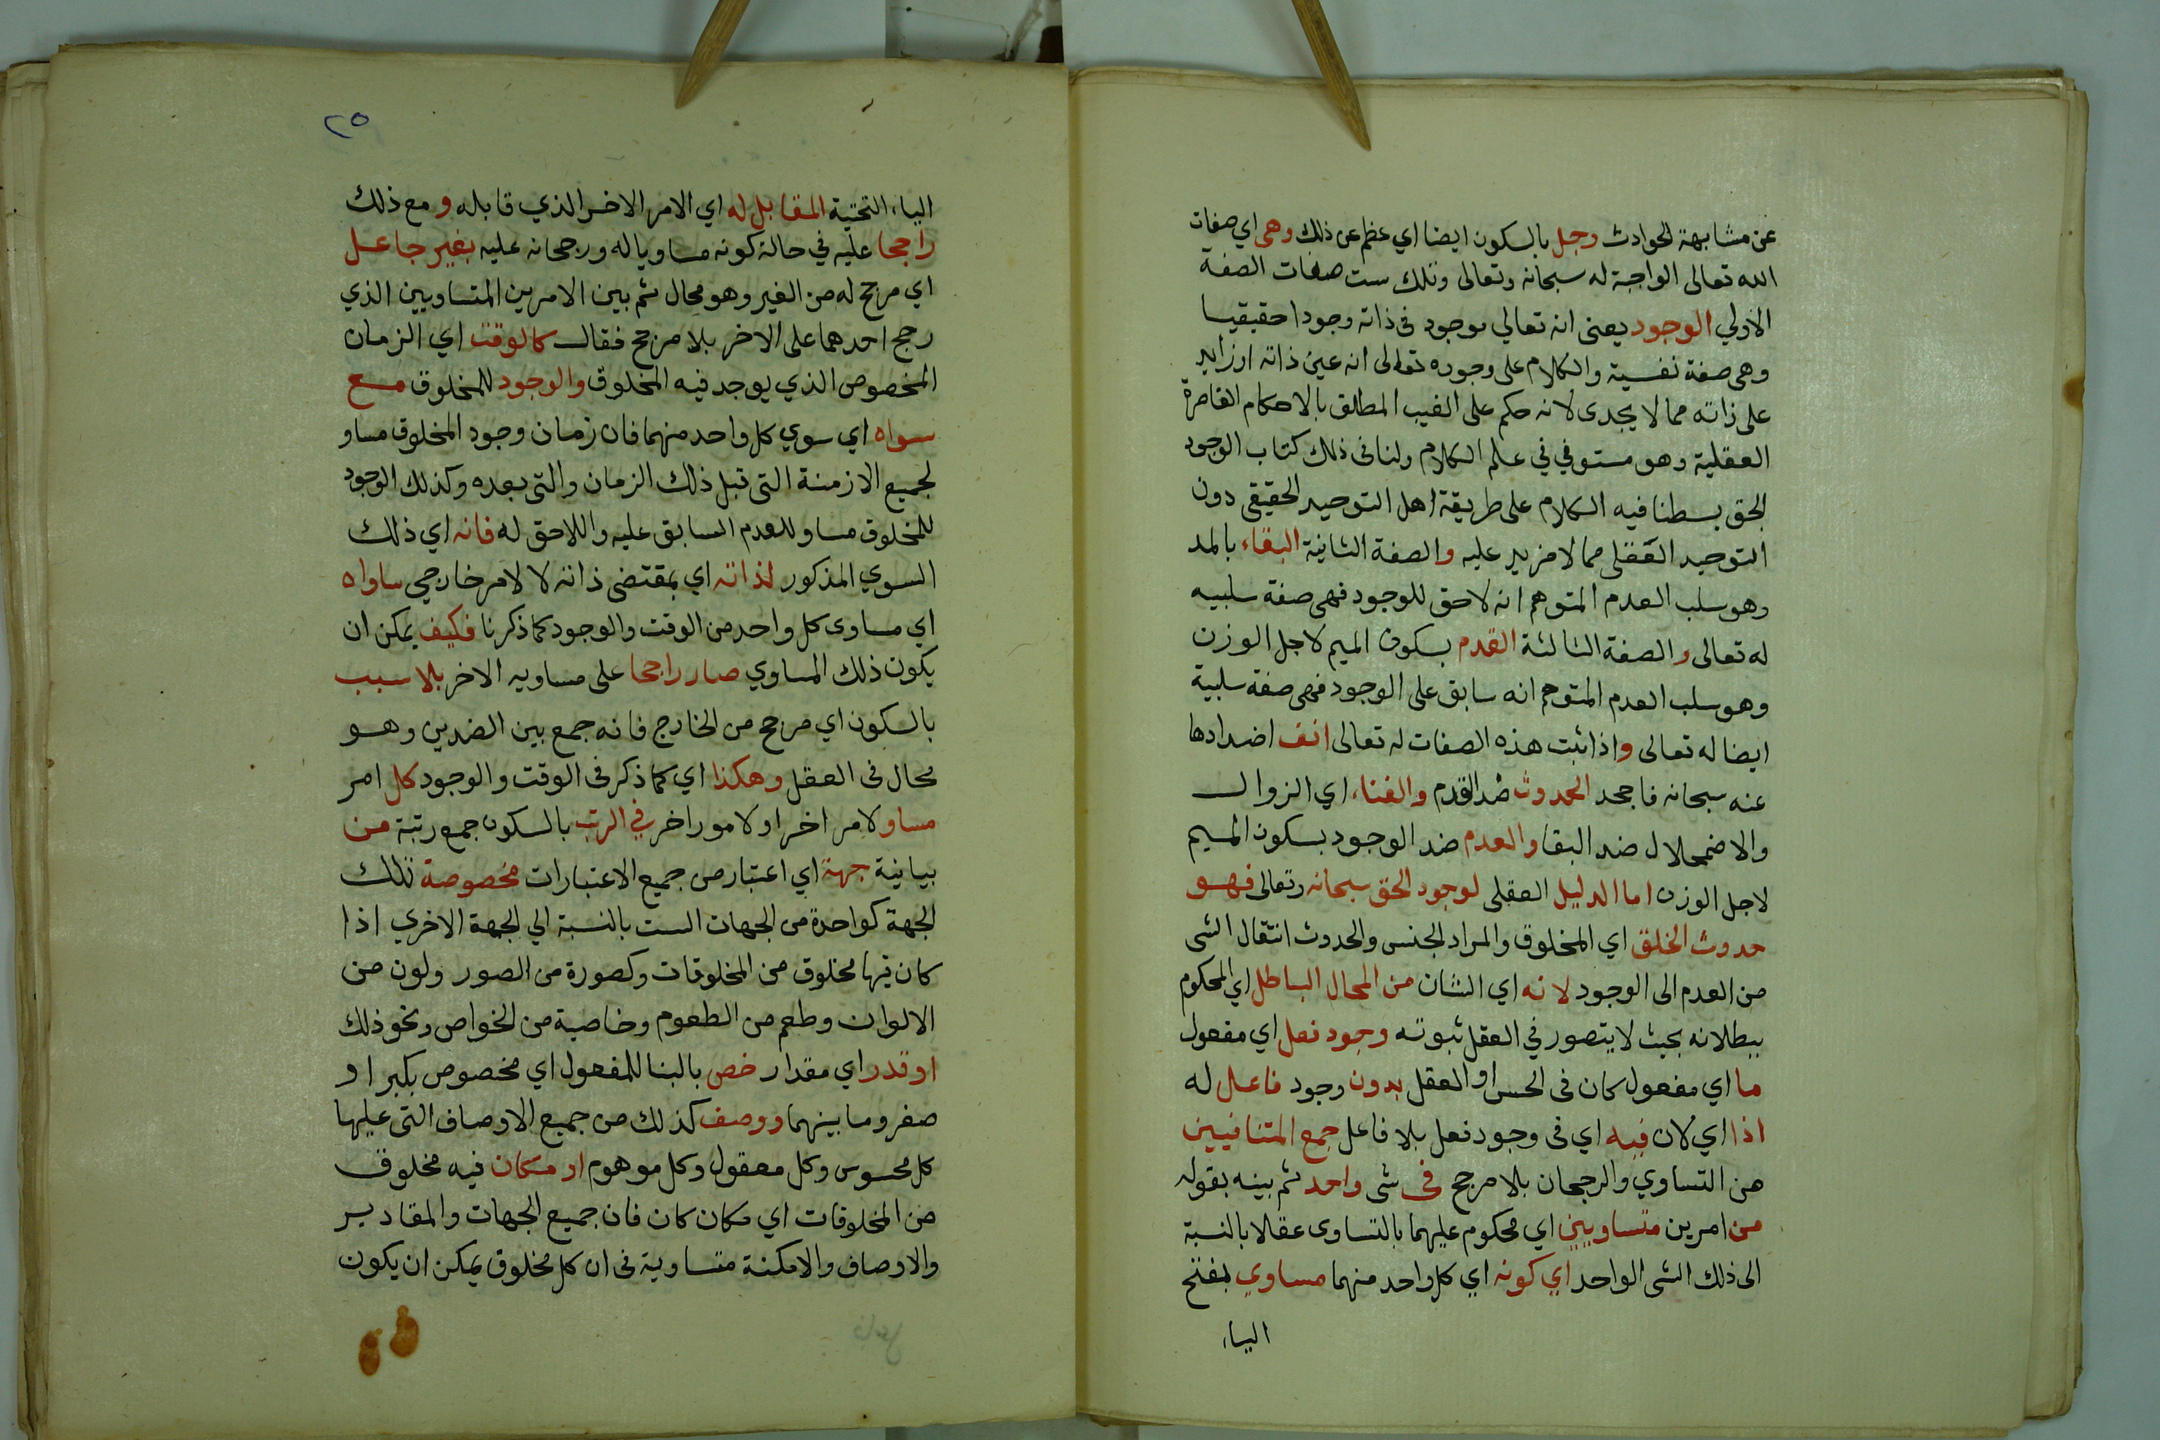 عن مشابهة الحوادث وجل بالسكون ايضا اي عظم عن ذلك وهى اي صفات
الله تعالى الواجبة له سبحانه وتعالى وتلك ست صفات الصفة
الاولي الوجود يعنى انه تعالي موجود فى ذاته وجودا حقيقيا
وهى صفة نفسية والكلام على وجوده تعالى انه عين ذاته او زايد
على ذاته مما لا يجدى لانه حكم على الغيب المطلق بالاحكام القاصرة
العقلية وهو مستوفي في علم الكلام ولنا فى ذلك كتاب الوجود
الحق بسطنا فيه الكلام على طريقة اهل التوحيد الحقيقى دون
التوحيد العقلى مما لا مزيد عليه والصفة الثانية البقاء بالمد
وهو سلب العدم المتوهم انه لاحق للوجود فهى صفة سلبيه
له تعالى والصفة الثالثة القدم بسكون الميم لاجل الوزن
وهو سلب العدم المتوهم انه سابق على الوجود فهى صفة سلبية
ايضا له تعالى واذا ثبت هذه الصفات له تعالى انف اضدادها
عنه سبحانه فاجحد الحدوث ضد القدم والفناء اي الزوال
والاضمحلال ضد البقا والعدم ضد الوجود بسكون الميم
لاجل الوزن اما الدليل العقلى لوجود الحق سبحانه وتعالى فهو
حدوث الخلق اي المخلوق والمراد الجنس والحدوث انتقال الشى
من العدم الى الوجود لانه اي الشان من المحال الباطل اي المحكوم
ببطلانه بحيث لا يتصور في العقل ثبوته وجود فعل اي مفعول
ما اي مفعول كان فى الحس او العقل بدون وجود فاعل له
اذا اي لان فيه اي فى وجود فعل بلا فاعل جمع المتنافيين
من التساوي والرجحان بلا مرجح فى شى واحد ثم بينه بقوله
من امرين متساويين اي محكوم عليهما بالتساوى عقلا بالنسبة
الى ذلك الشى الواحد اي كونه اي كل واحد منهما مساوي بفتح
الياء
٢٥
الياء التحتية المقابل له اي الامر الاخر الذي قابله و مع ذلك
راجحا عليه في حالة كونه مساويا له ورجحانه عليه بغير جاعل
اي مرجح له من الغير وهو محال ثم بين الامرين المتساويين الذي
رجح احدهما على الاخر بلا مرجح فقال كالوقت اي الزمان
المخصوص الذي يوجد فيه المخلوق والوجود للمخلوق مع
سواه اي سوي كل واحد منهما فان زمان وجود المخلوق مساو
لجميع الازمنة التى قبل ذلك الزمان والتى بعده وكذلك الوجود
للمخلوق مساو للعدم السابق عليه واللاحق له فانه اي ذلك
السوي المذكور لذاته اي بمقتضى ذاته لا لامر خارجي ساواه
اي مساوى كل واحد من الوقت والوجود كما ذكرنا فكيف يمكن ان
يكون ذلك المساوي صار راجحا على مساويه الاخر بلا سبب
بالسكون اي مرجح من الخارج فانه جمع بين الضدين وهو
محال فى العقل وهكذا اي كما ذكر فى الوقت والوجود كل امر
مساو لامر اخر او لامور اخر في الرتب بالسكون جمع رتبة من
بيانية جهة اي اعتبار من جميع الاعتبارات مخصوصة تلك
الجهة كواحدة من الجهات الست بالنسبة الي الجهة الاخري اذا
كان فيها مخلوق من المخلوقات وكصورة من الصور ولون من
الالوان وطعم من الطعوم وخاصية من الخواص ونحو ذلك
او قدر اي مقدار خص بالبنا للمفعول اي مخصوص بكبر او
صغر وما بينهما ووصف كذلك من جميع الاوصاف التى عليها
كل محسوس وكل معقول وكل موهوم او مكان فيه مخلوق
من المخلوقات اي مكان كان فان جميع الجهات والمقادير
والاوصاف والامكنة متساوية فى ان كل مخلوق يمكن ان يكون